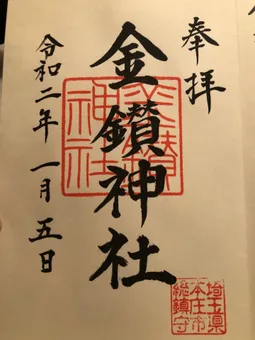 奉拝
金鑚神社
令和二年一月五日
金鑚
神社
埼玉県
本庄市
総鎮守